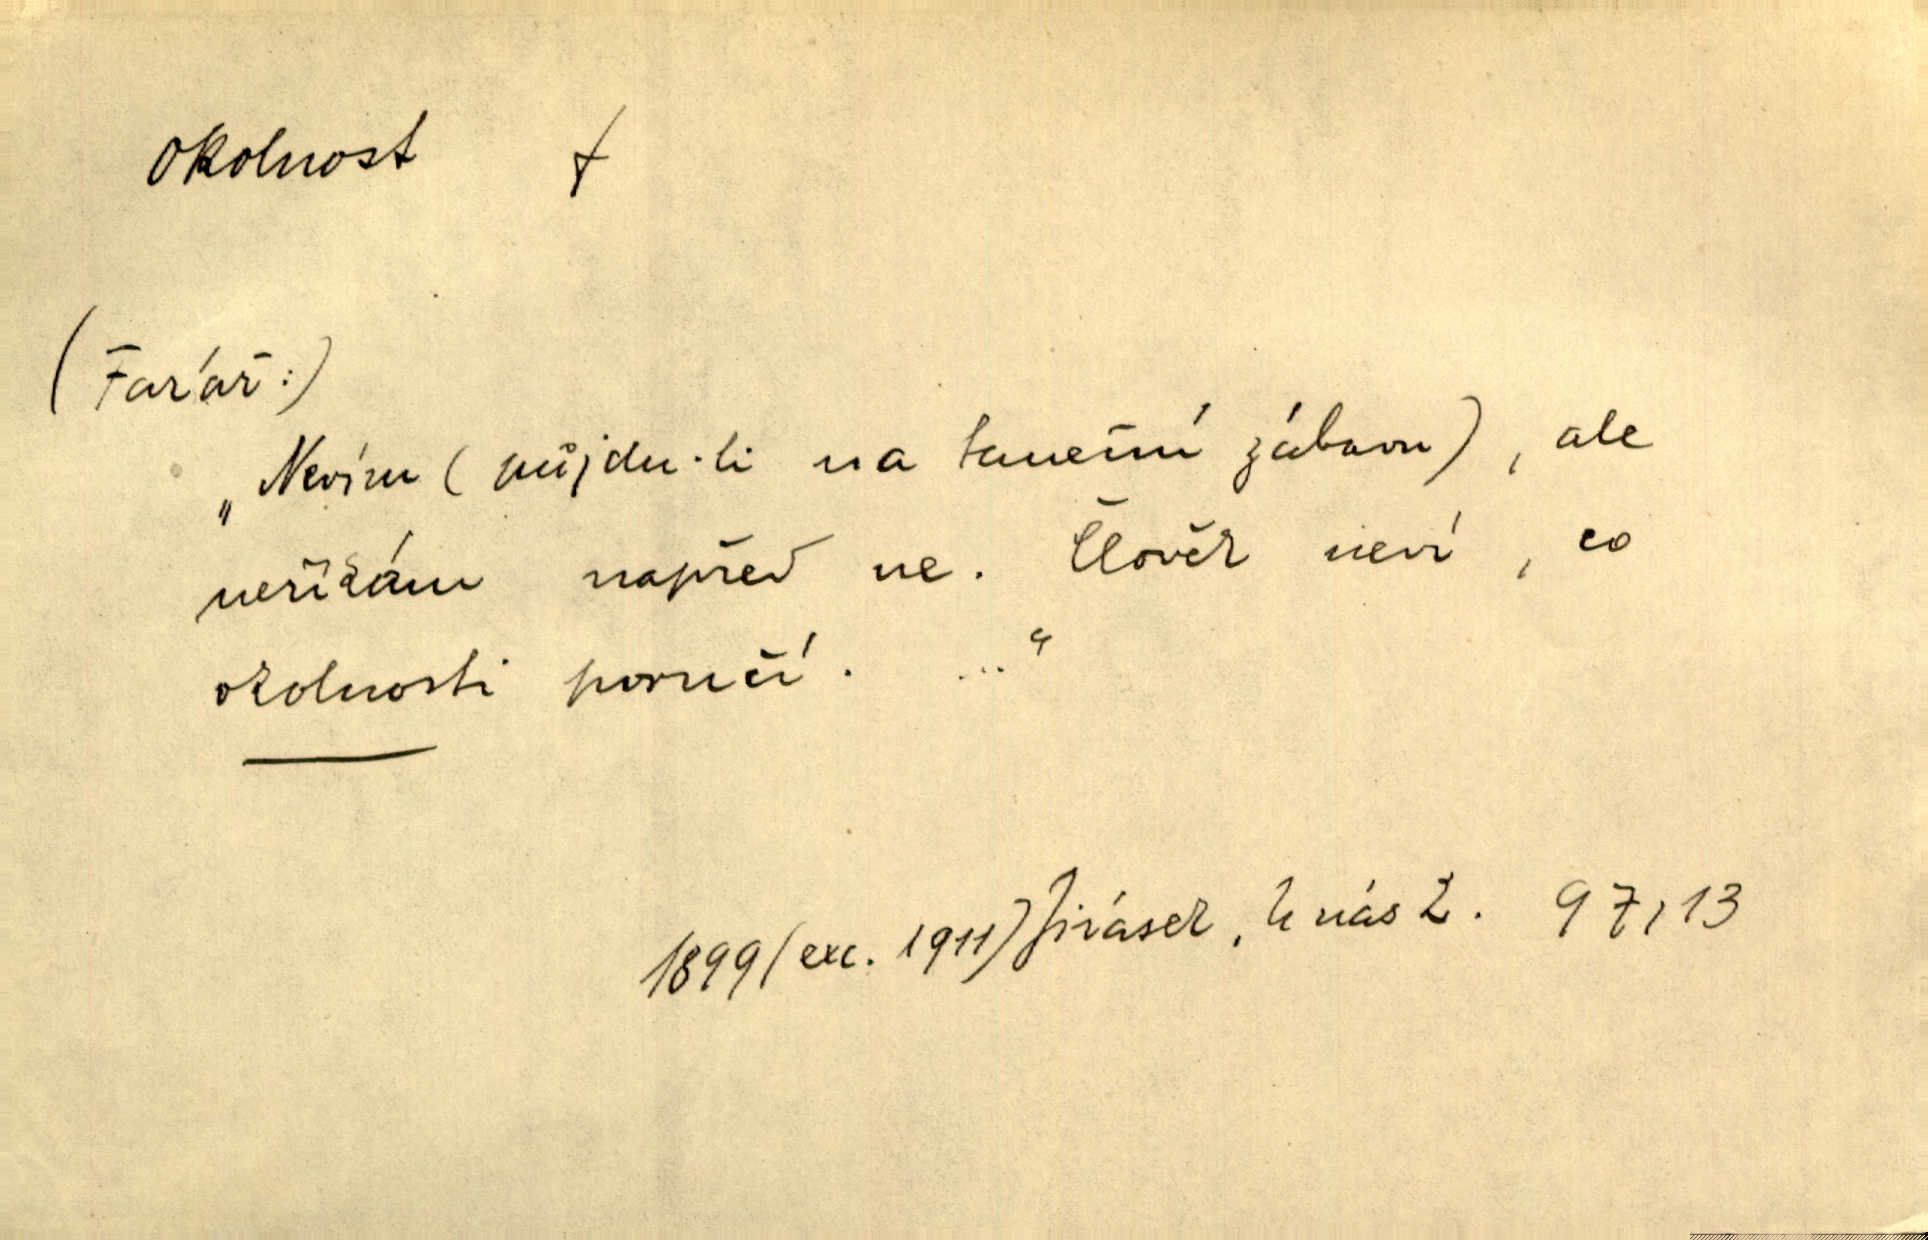 okolnost f
(Farář:)
„Nevím (půjdu-li na taneční zábavu), ale
neříkám napřed ne. Člověk neví, co
okolnosti poručí. ..."
1899 (exc. 1911) Jirásek, U nás 2. 97,13